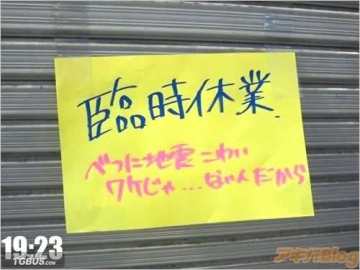 臨時休業.
べつに地震こわい
ワケじゃ...ないんだから
19:23
TGBUS.COM
アキバBlog